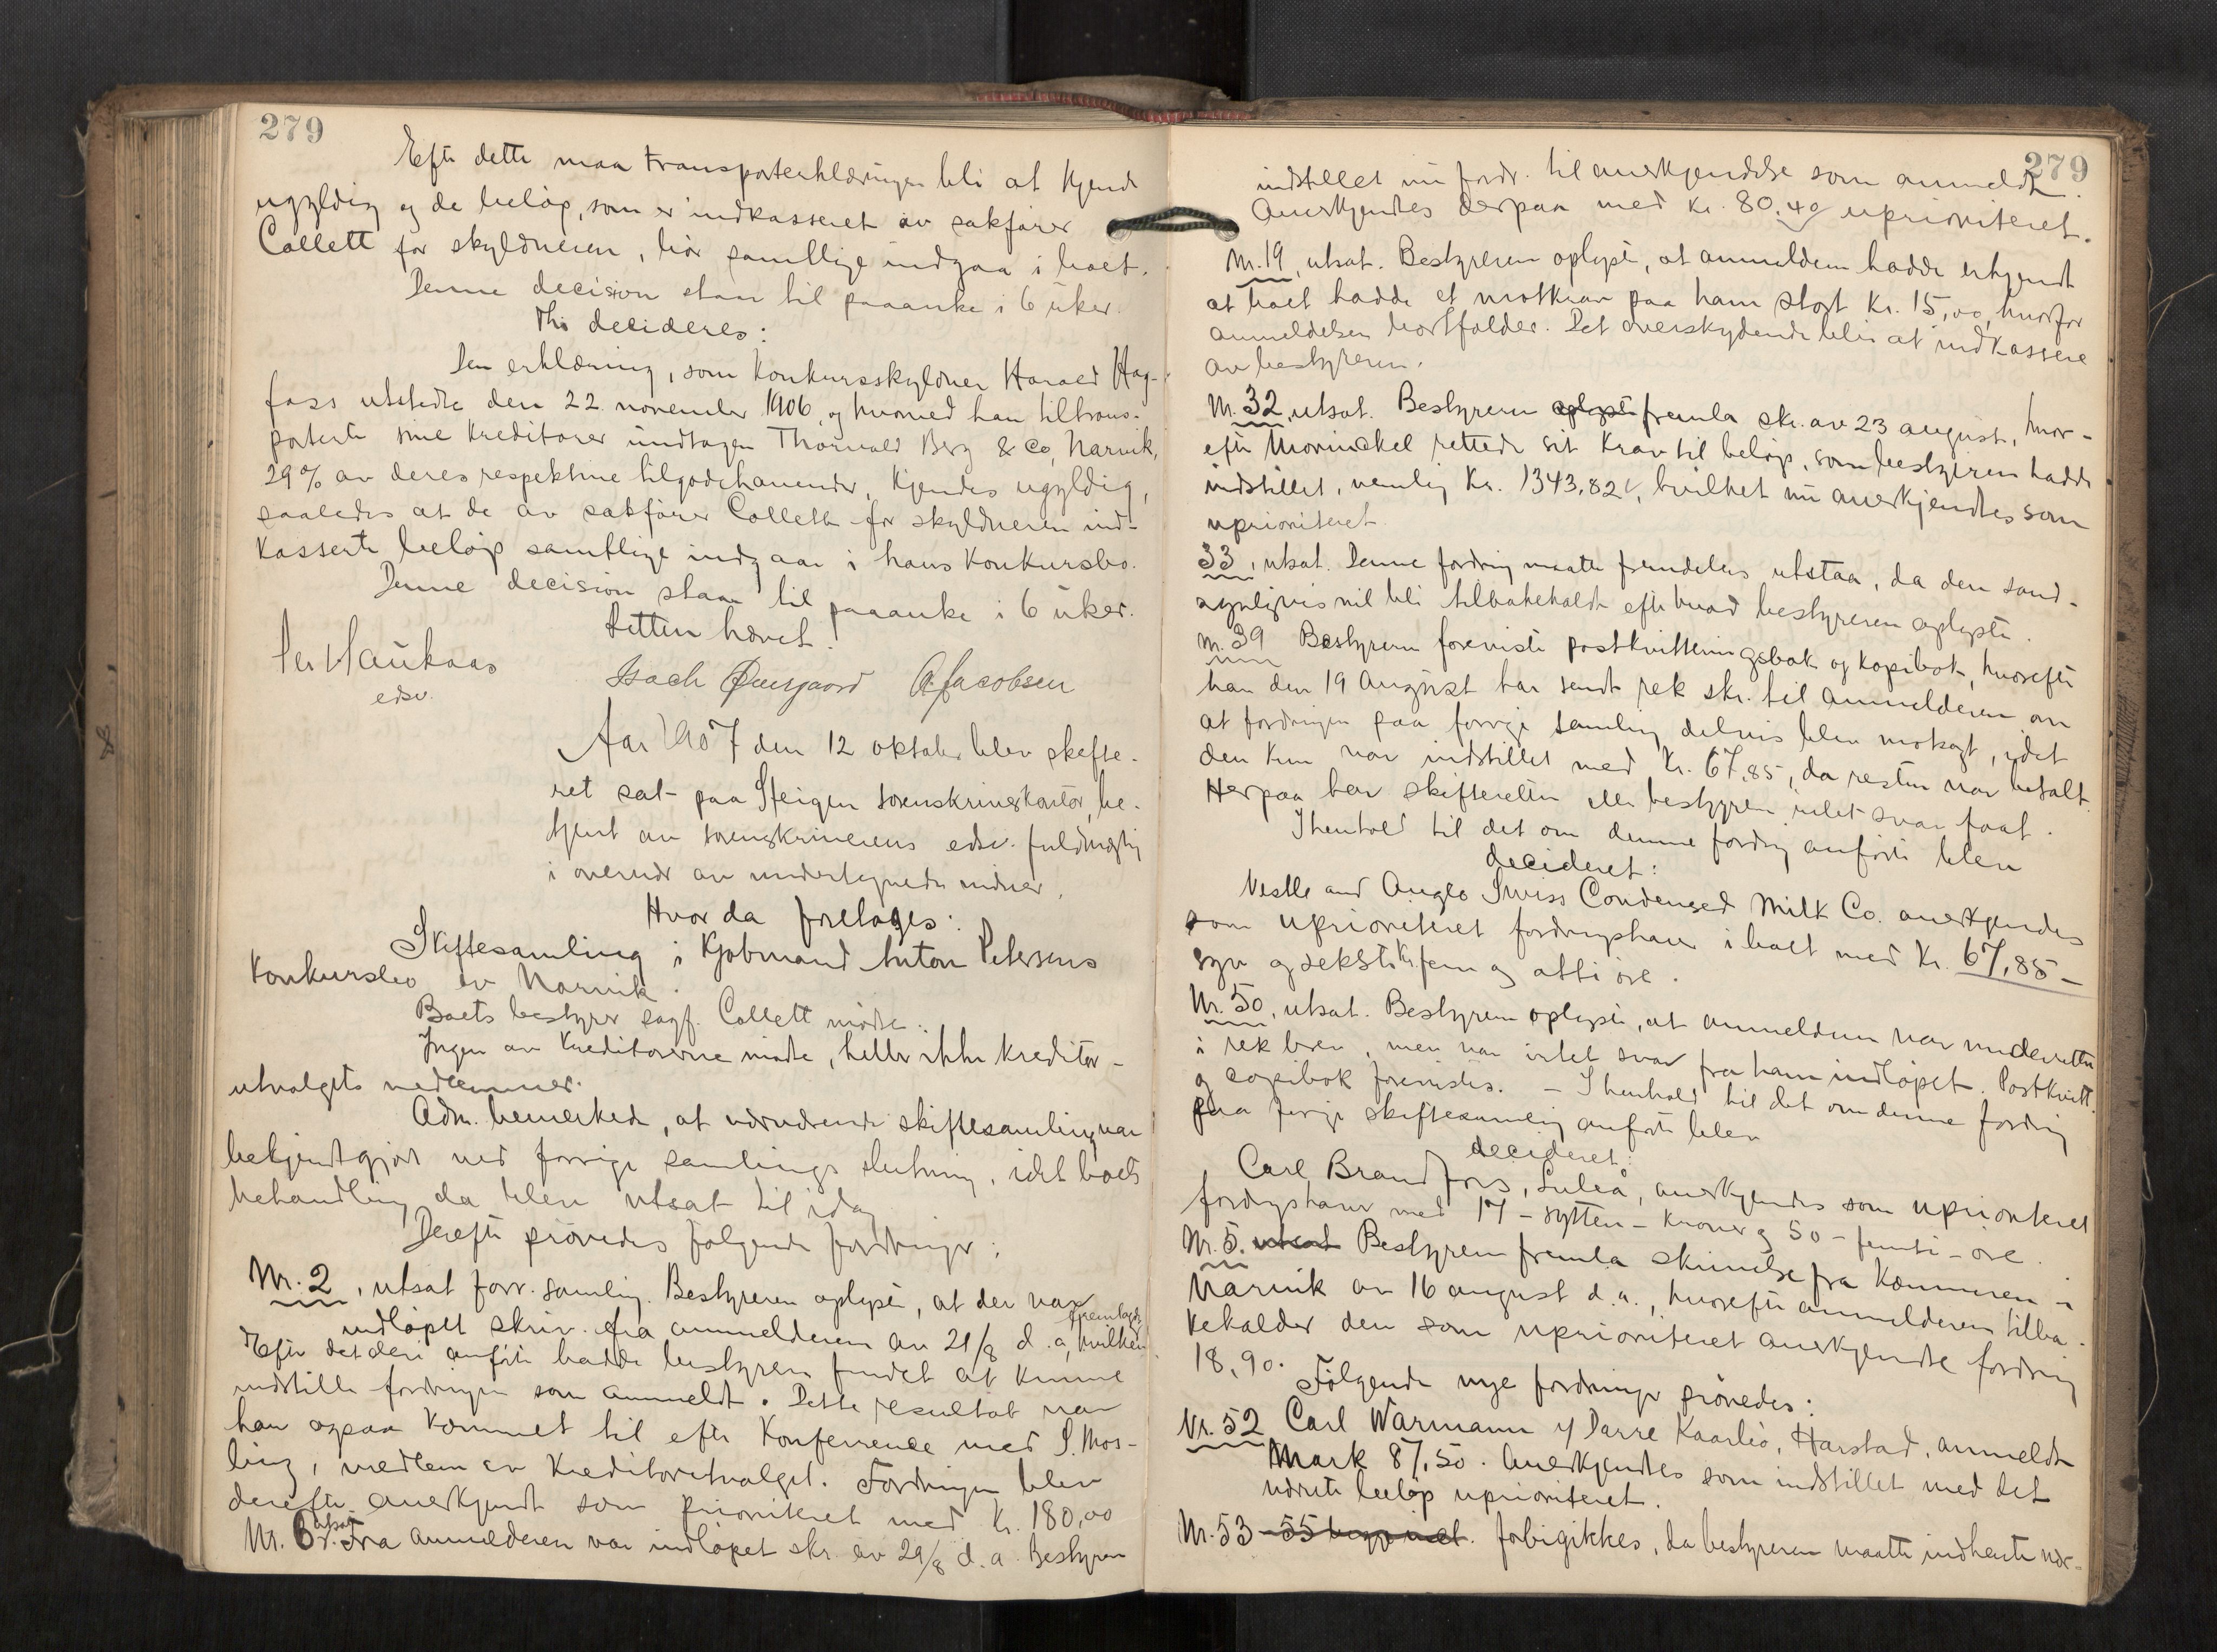 279
Efter dette maa transporterklæringen bli at kjende
ugyldig og de beløp, som er indkasseret av sakfører
Collett for skyldneren, bør samtlige indgaa i boet.
Denne decision staar til paaanke i 6 uker.
Thi decideres:
Den erklæring, som konkursskyldner Harald Hag-
fass utstedte den 22 november 1906, og hvorved han tiltrans-
porterte sine kreditorer undtagen Thorvald Berg & Co, Narvik,
29% av deres respektive tilgodehavender, kjendes ugyldig,
saaledes at de av sakfører Collett for skyldneren ind-
kasserte beløp samtlige indgaar i hans konkursbo.
Denne decision staar til paaanke i 6 uker.
Retten hævet!
Per Haukaas
edsv.
Isach Øvergaard A. Jacobsen
Aar 1907 den 12 oktober blev skifte-
ret sat paa Steigen sorenskriverkontor, be-
tjent av sorenskriverens edsv. fuldmægtig
i overvær av undertegnede vidner.
Hvor da foretoges:
Skiftesamling i kjøbmand Anton Petersens
konkursbo av Narvik.
Boets bestyrer sagf. Collett møtte.
Ingen av kreditorerne møtte, heller ikke kreditor-
utvalgets medlemmer.
Adm. bemerkede, at nærværende skiftesamling var
bekjendtgjort ved forrige samlings slutning, idet boets
behandling da blev utsat til idag
Derefter prøvedes følgende fordringer:
Nr. 2, utsat forr. samling. Bestyreren oplyste, at der var
indløpet skriv. fra anmelderen av 21/8 d.a, hvilken fremlagdes
Efter det deri anførte hadde bestyreren fundet at kunne
indstille fordringen som anmeldt. Dette resultat var
han ogsaa kommet til efter konferrence med S. Mos-
ling, medlem av kreditorutvalget. Fordringen blev
derefter anerkjendt som prioriteret med kr. 180,00
Nr. 6, utsat. Fra anmelderen var indløpet skr. av 29/8 d.a. Bestyreren
279
indstillet nu fordr. til anerkjendelse som anmeldt.
Anerkjendtes derpaa med kr. 80.40 uprioriteret.
Nr. 19, utsat. Bestyreren oplyste, at anmelderen hadde erkjendt
at boet hadde et motkrav paa ham stort kr. 15,00, hvorfor
anmeldelsen bortfalder. Det overskydende blir at indkassere
av bestyreren.
Nr. 32, utsat. Bestyreren oplyste fremla skr. av 23 august, hvor-
efter Mowinckel rettede sit krav til beløp, som bestyreren hadde
indstillet, nemlig kr. 1343,82, hvilket nu anerkjendtes som
uprioriteret.
33, utsat. Denne fordring maatte fremdeles utstaa, da den sand-
synligvis vil bli tilbakeholdt efter hvad bestyreren oplyste.
Nr. 39 Bestyreren foreviste postkvitteringsbok og kopibok, hvorefter
han den 19 august har sendt rek skr. til anmelderen om
at fordringen paa forrige samling delvis blev motsagt, idet
den kun var indstillet med kr. 67,85, da resten var betalt.
Herpaa har skifteretten eller bestyreren intet svar faat.
I henhold til det om denne fordring anførte blev
decideret:
Nestle and Anglo Swiss Condensed Milk Co. anerkjendes
som uprioriteret fordringshaver i boet med kr. 67,85 -
syv og seksti kr. fem og otti øre.
Nr. 50, utsat. Bestyreren oplyste, at anmelderen var underrettet
i rek brev, men var intet svar fra ham indløpet. Postkvitt.
og copibok forevistes. - I henhold til det om denne fordring
paa forrige skiftesamling anførte blev
decideret:
Carl Brandfors, Luleå, anerkjendes som uprioriteret
fordringshaver med 17 - sytten - kroner og 50 - femti - øre.
Nr. 5. utsat Bestyreren fremla skrivelse fra kæmneren i
Narvik av 16 august d.a., hvorefter anmelderen tilba-
keholder den som uprioriteret anerkjendte fordring
18,90.
Følgende nye fordringer prøvedes:
Nr. 52 Carl Warmann v/ Darre Kaarbø, Harstad, anmeldt
Mark 87,50. Anerkjendtes som indstillet med det
nævnte beløp uprioriteret.
Nr. 53 - 55 begge incl. forbigikkes, da bestyreren maatte indhente nær-